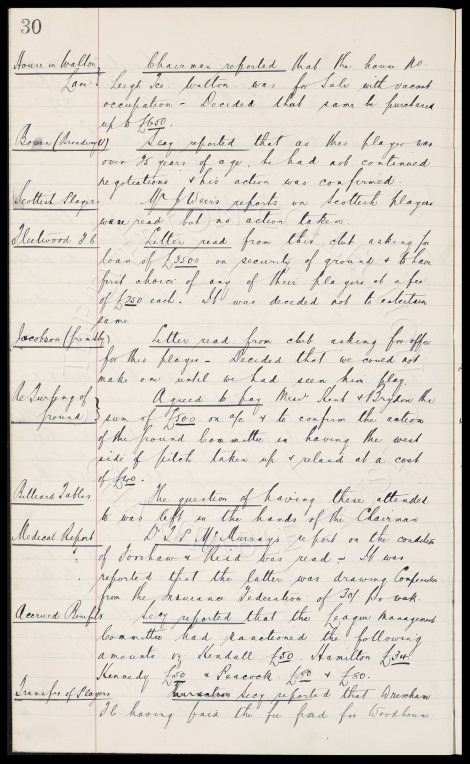 30
House in Walton Lane } Chairman reported that the house No.
Leigh Ter. Walton was for Sale with vacant
occupation - Decided that same be purchased
up to £650.
Bowen (Broadway U) Secy reported that as this player was
over 25 years of age, he had not continued
negotiations & his action was confirmed.
Scottish Players Mr J Weirs reports on Scottish players
were read but no action taken.
Fleetwood F C Letter read from this club asking for
loan of £3500 on security of ground & to have
first choice of any of their players at a fee
of £250 each. It was decided not to entertain
same.
Jacobson (Grimsby) Letter read from club asking for offer
for this player - Decided that we could not
make one until we had seen him play.
Re Turfing of ground } Agreed to pay Messrs Kent & Brydon the
sum of £500 on a/c & to confirm the action
of the Ground Committee in having the west
side of pitch taken up & relaid at a cost
of
Billiard Tables The question of having these attended
to was left in the hands of the Chairman
Medical Report Dr T. P. McMurrays report on the condition
of Forshaw & Reid was read - It was
reported that the latter was drawing Compensation
from the Insurance Federation of 30/ per week.
Accrued Benefits Secy reported that the League Management
Committee had sanctioned the following
amounts viz Kendall £50. Hamilton £34
Kennedy £50 & Peacock & £50.
Transfer of Players Secy reported that Wrexham
FC having paid the fee fixed for Woodhouse